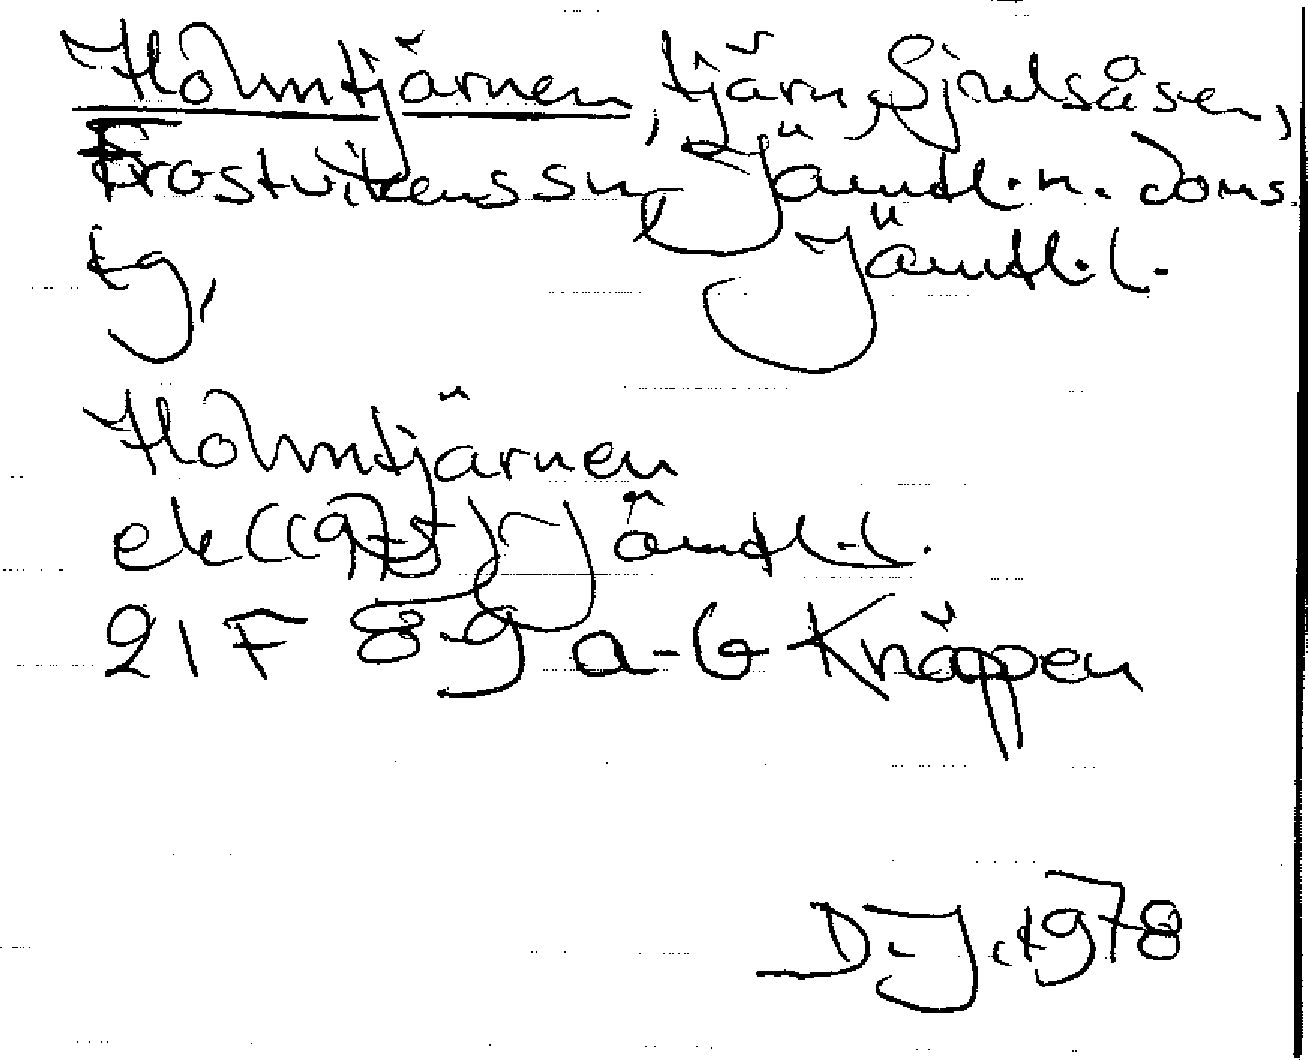 Holmtjärnen, tjärn, Sjulsåsen,
Frostvikens sn, Jämtl. n. doms.
tg,
Jämtl. l.
Holmtjärnen
ek (1975) Jämtl. l.
21 F 8-9 a-b Knäppen
D. J. 1978